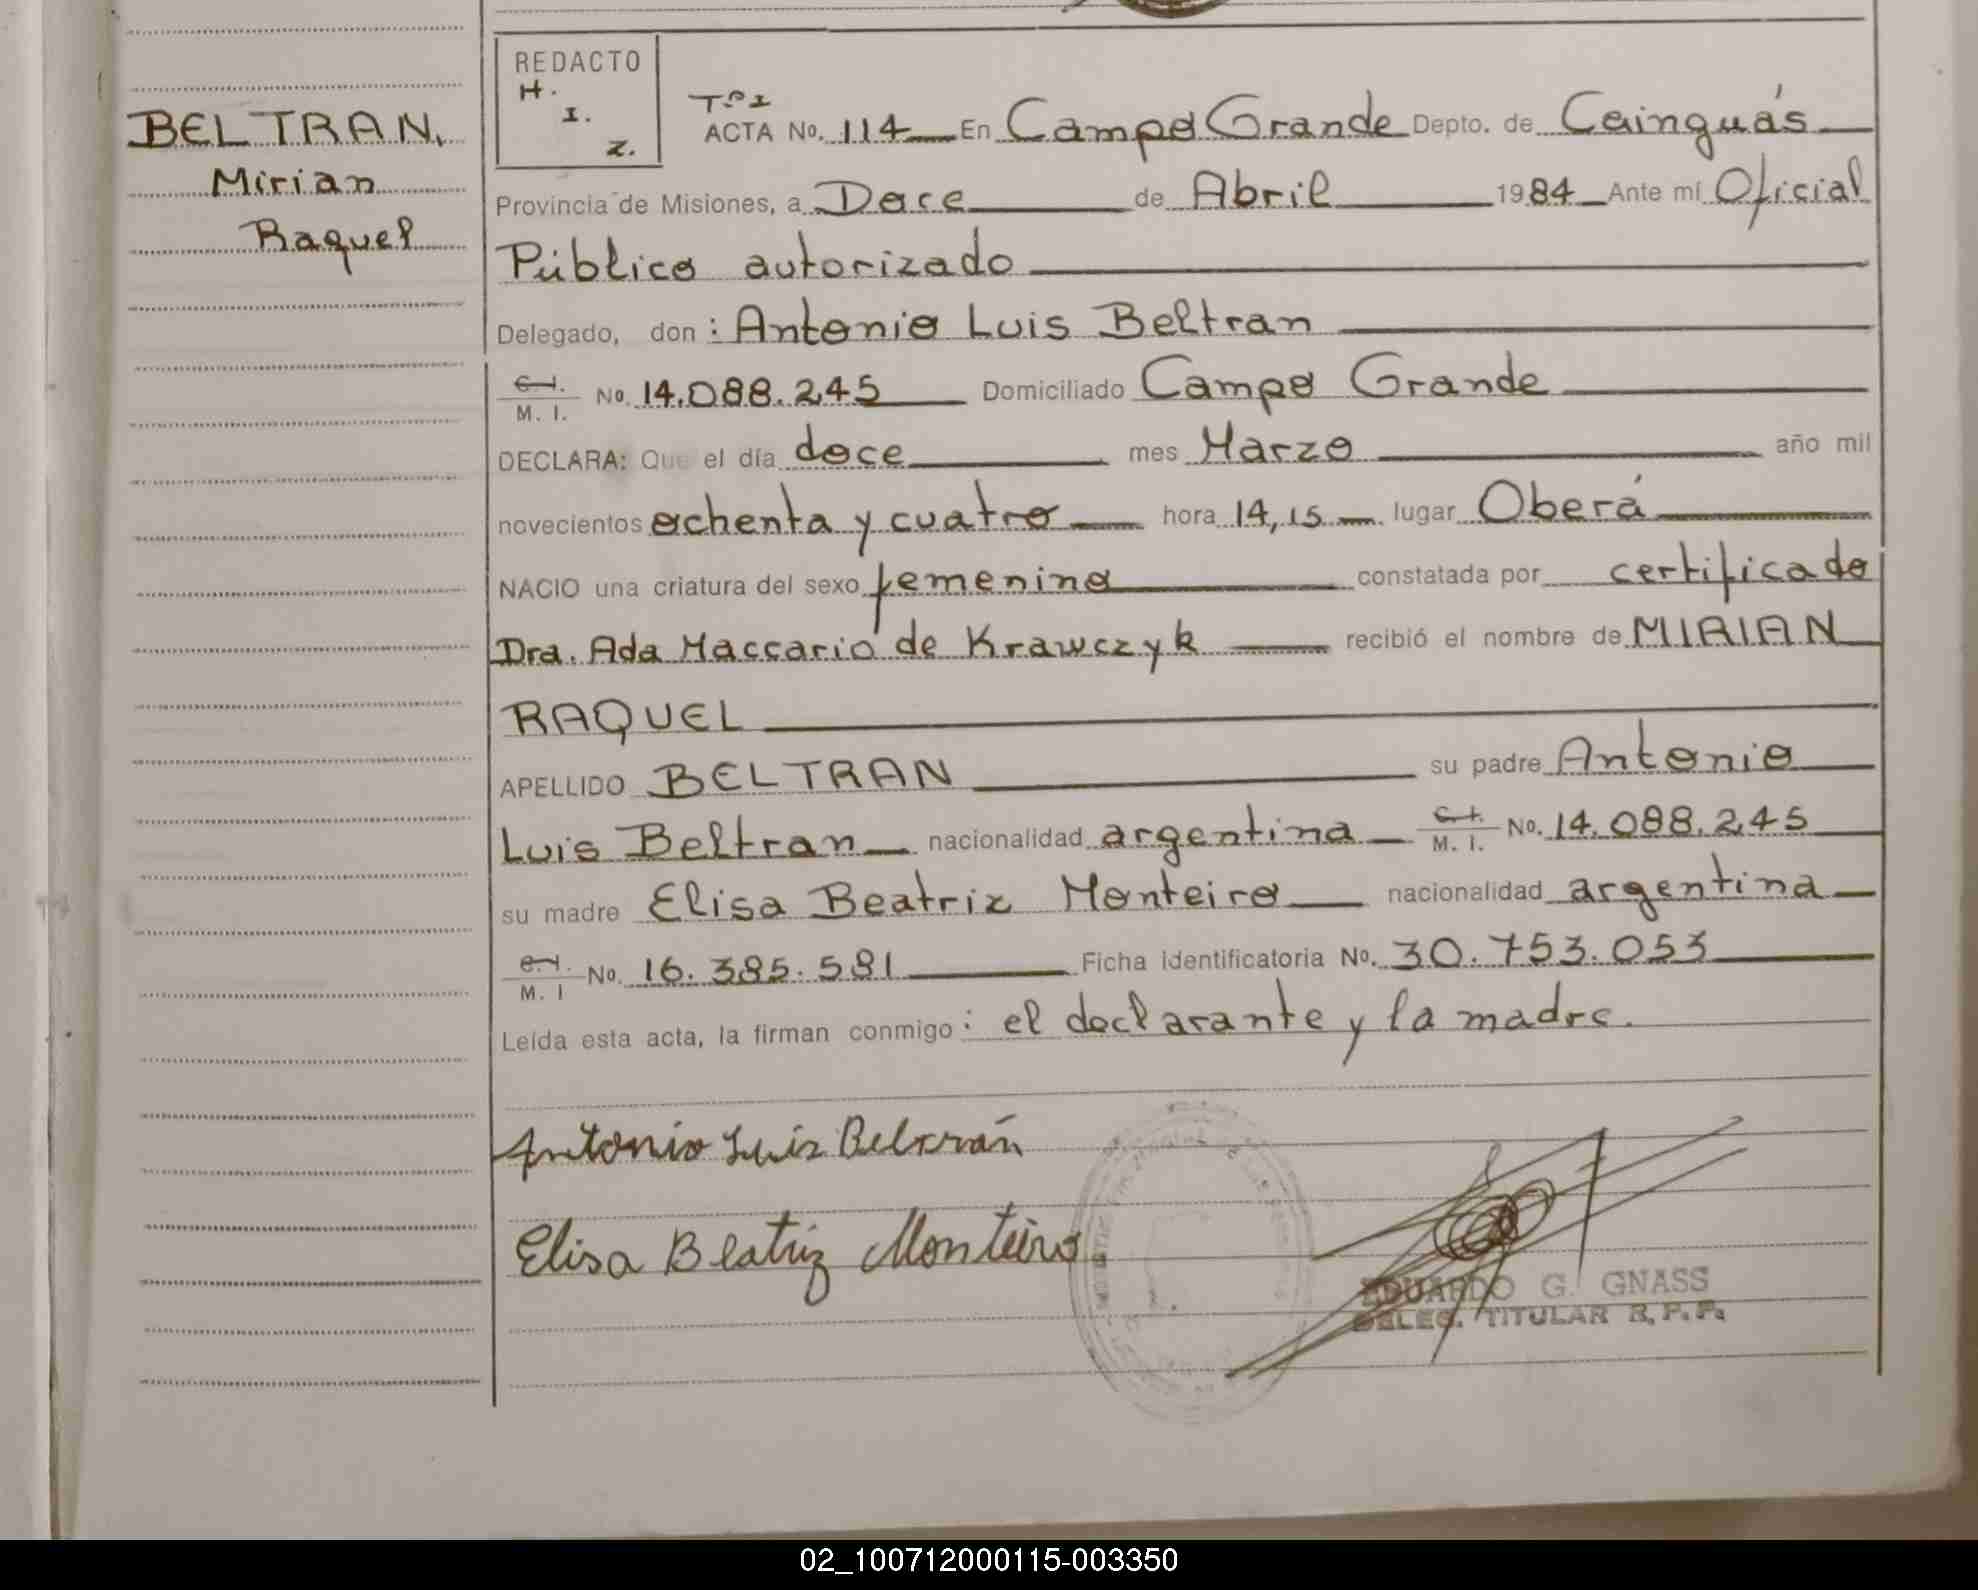 BELTRAN,
Mirian
Raquel
REDACTO
H.
I.
Z.
Tº I
ACTA No. 114 En Campo Grande Depto. de Cainguás
Provincia de Misiones, a Doce de Abril 1984 Ante mí Oficial
Público autorizado
Delegado, don: Antonio Luis Beltran
C. I. / M. I. No. 14.088.245 Domiciliado Campo Grande
DECLARA: Que el día doce mes Marzo año mil
novecientos ochenta y cuatro hora 14,15 lugar Oberá
NACIO una criatura del sexo femenino constatada por certificado
Dra. Ada Maccario de Krawczyk recibió el nombre de MIRIAN
RAQUEL
APELLIDO BELTRAN su padre Antonio
Luis Beltran nacionalidad argentina C. I. / M. I. No. 14.088.245
su madre Elisa Beatriz Monteiro nacionalidad argentina
C. I. / M. I No. 16.385.581 Ficha identificatoria No. 30.753.053
Leída esta acta, la firman conmigo: el declarante y la madre.
Antonio Luis Beltrán
Elisa Beatriz Monteiro.
EDUARDO G. GNASS
DELEG. TITULAR R.P.P.
02_100712000115-003350